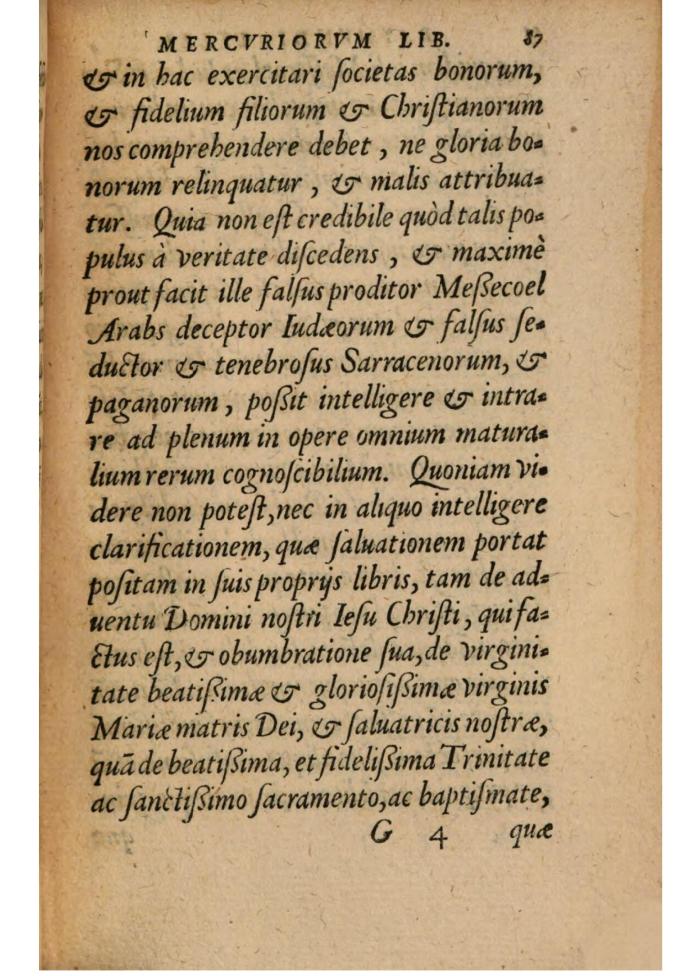 MERCVRIORVM LIB. 87
& in hac exercitari ſocietas bonorum,
& fidelium filiorum & Chriſtianorum
nos comprehendere debet, ne gloria bo-
norum relinquatur, & malis attribua-
tur. Quia non eſt credibile quòd talis po-
pulus à veritate diſcedens, & maximè
prout facit ille falſus proditor Meßecoel
Arabs deceptor Iudæorum & falſus ſe-
ductor & tenebroſus Sarracenorum, &
paganorum, poßit intelligere & intra-
re ad plenum in opere omnium matura-
lium rerum cognoſcibilium. Quoniam vi-
dere non poteſt, nec in aliquo intelligere
clarificationem, quæ ſaluationem portat
poſitam in ſuis proprijs libris, tam de ad-
uentu Domini noſtri Ieſu Chriſti, qui fa-
ctus eſt, & obumbratione ſua, de virgini-
tate beatißimæ & glorioſißimæ virginis
Mariæ matris Dei, & ſaluatricis noſtræ,
quā de beatißima, et fidelißima Trinitate
ac ſanctißimo ſacramento, ac baptiſmate,
G 4 quæ